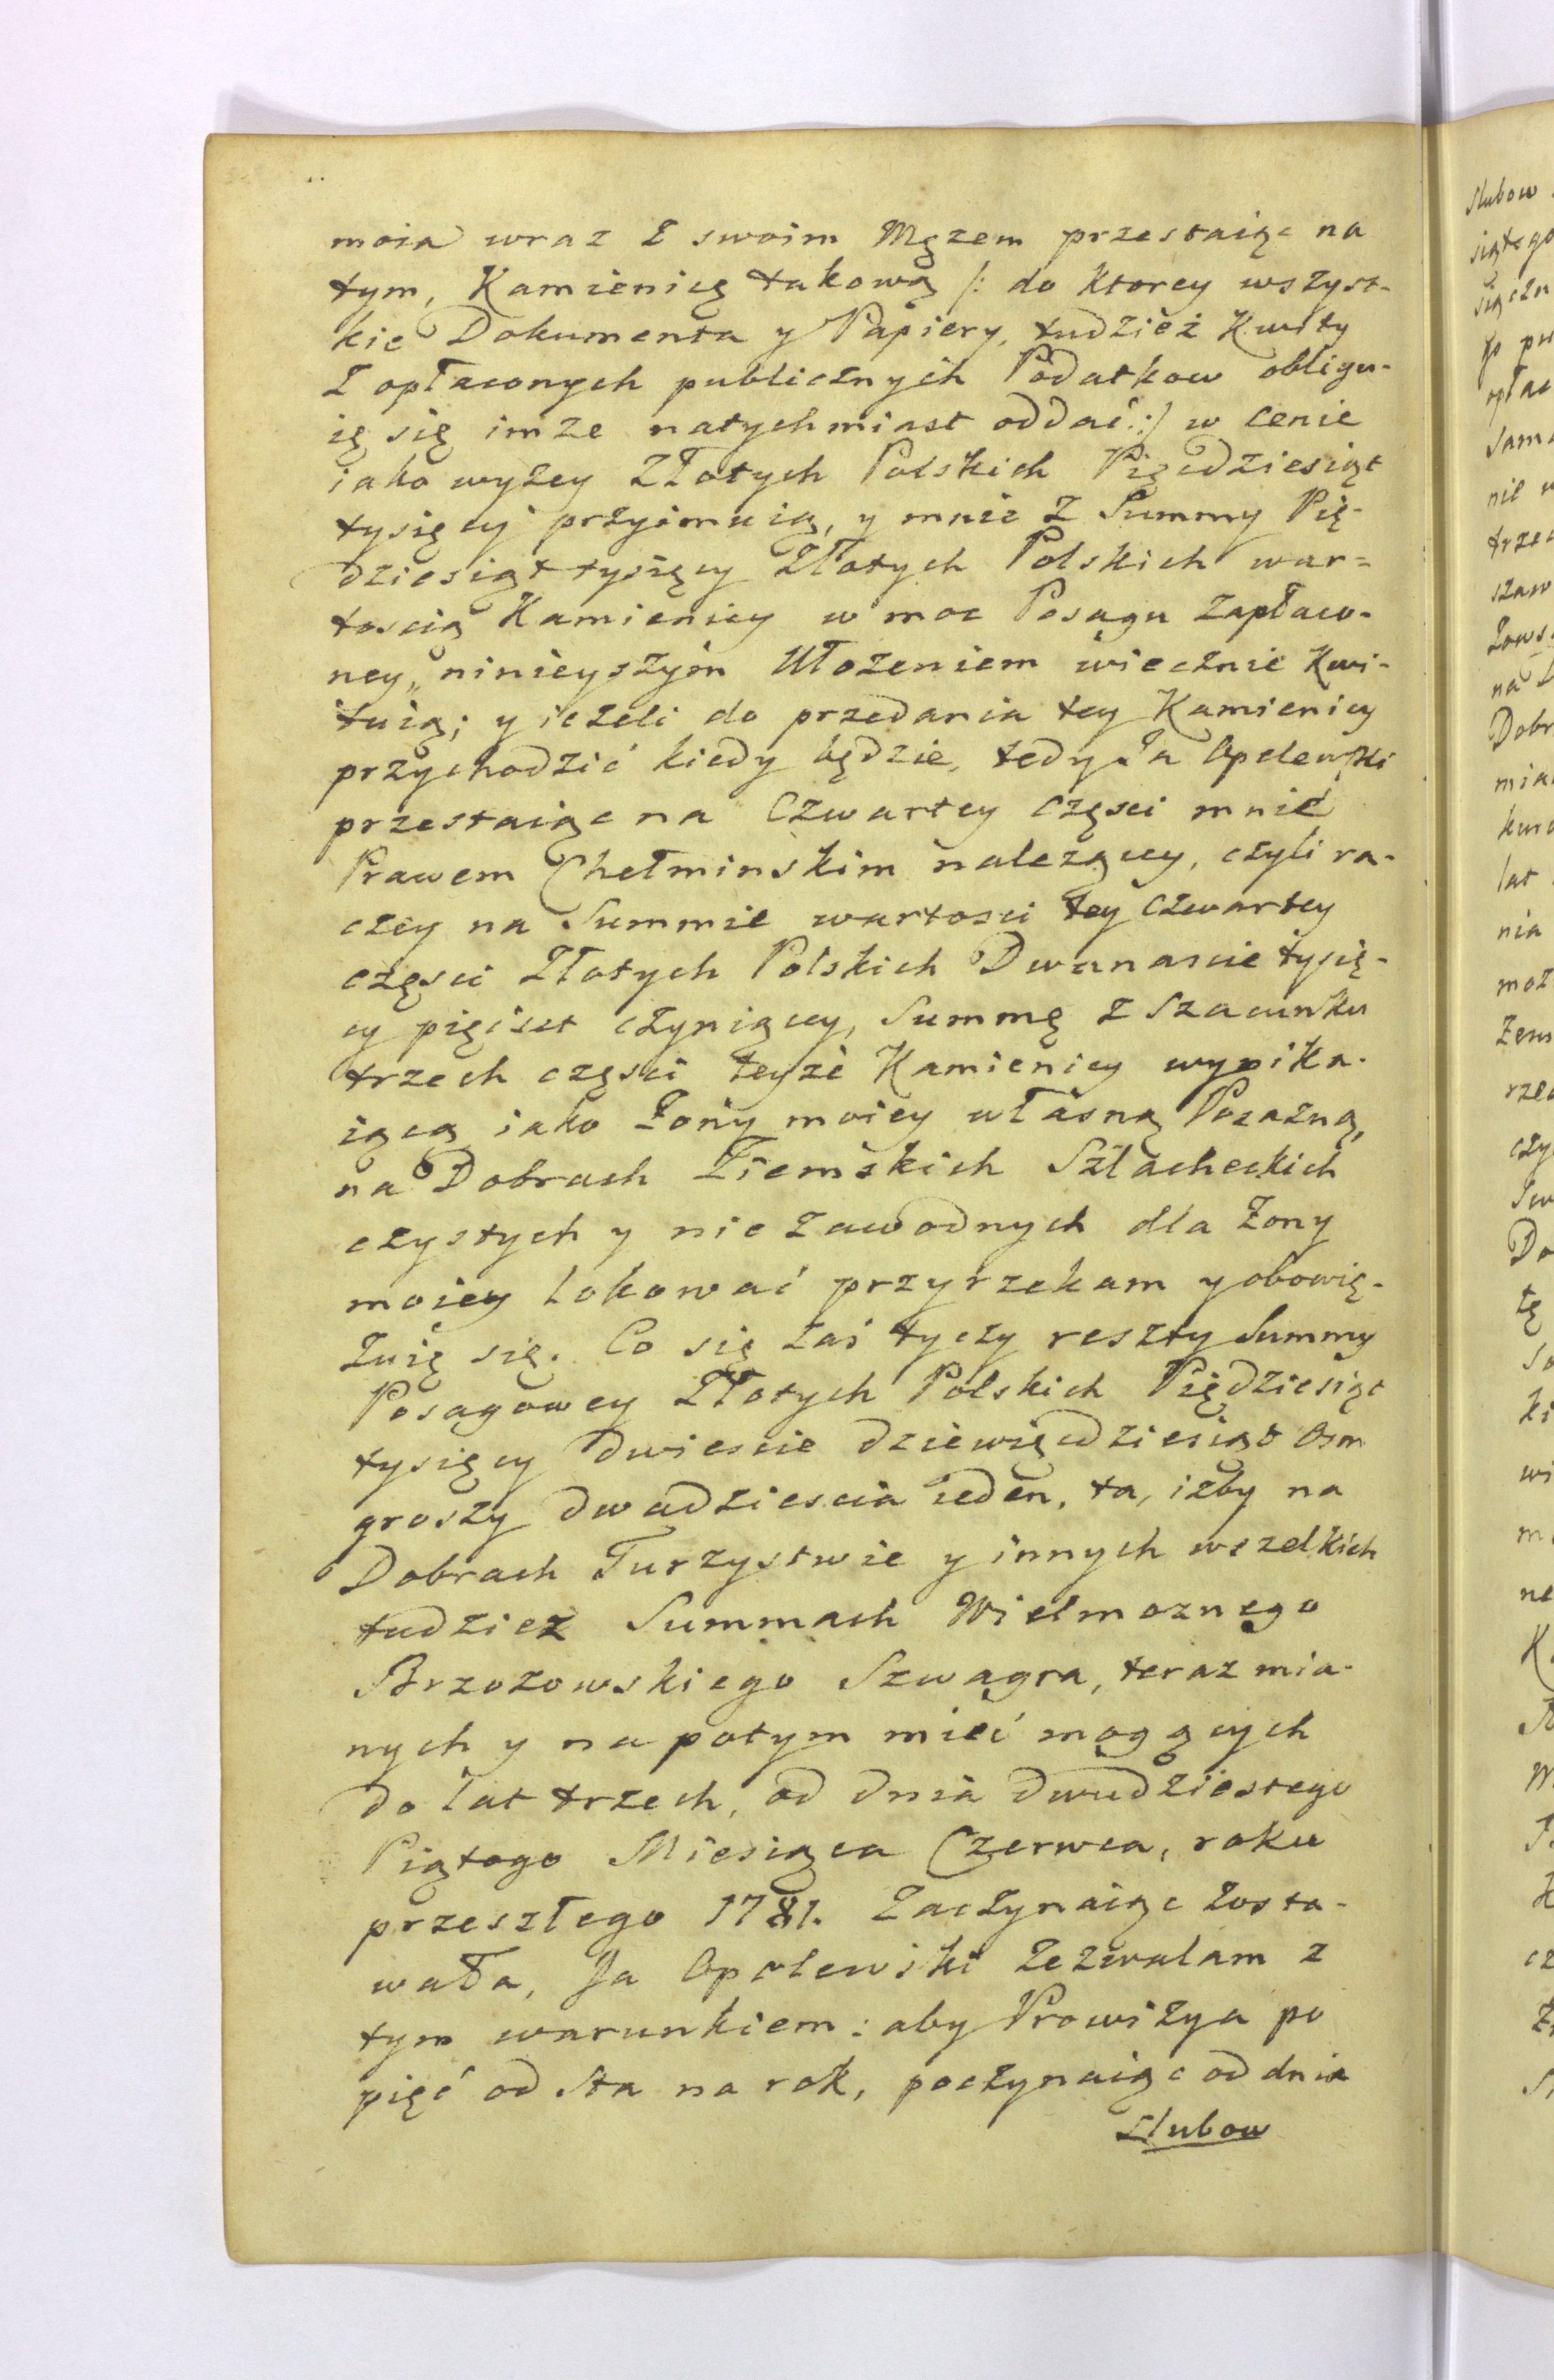 moia wraz z swoim Męzem przestaiąc na
tym, Kamienicę takową /: do ktorey wszyst-
kie Dokumenta y Papiery, tudzież Kwity
z opłaconych publicznych Podatkow obligu-
ię się imże natychmiast oddać :/ w cenie
iako wyżey Złotych Polskich Pięcdziesiąt
tysięcy przyimuią, y mnie z Summy Pię-
dziesiąt tysięcy Złotych Polskich war=
toscią Kamienicy w moc Posagu zapłaco-
ney, ninieyszym Ułożeniem wiecznie kwi-
tuią; y ieżeli do przedania tey Kamienicy
przychodzić kiedy będzie, tedy Ja Opelewski
przestaiąc na Czwartey częsci mnie
Prawem Chełminskim należącey, czyli ra-
czey na Summie wartosci tey czwartey
częsci Złotych Polskich Dwanascie tysię-
cy pięcset czyniącey, Summę z Szacunku
trzech częsci teyże Kamienicy wynika-
iącą iako Żony moiey własną Posażną,
na Dobrach Ziemskich Szlacheckich
czystych y nie zawodnych dla Żony
moiey lokować przyrzekam y obowię-
zuię się. Co się zaś tyczy reszty Summy
Posagowey Złotych Polskich Pięдziesiąt
tysięcy dwiescie dziewięcdziesiąt osm
groszy dwadziescia ieden, ta, iżby na
Dobrach Turzystwie y innych wszelkich
tudzież Summach Wielmoznego
Brzozowskiego Szwagra, teraz mia-
nych y na potym mieć mogących
do lat trzech, od dnia dwudziestego
Piątego Miesiąca Czerwca, roku
przeszłego 1781. zaczynaiąc zosta-
wała, Ja Opelewski zezwalam z
tym warunkiem: aby Prowizya po
pięć od sta na rok, poczynaiąc od dnia
Slubow
Slubow